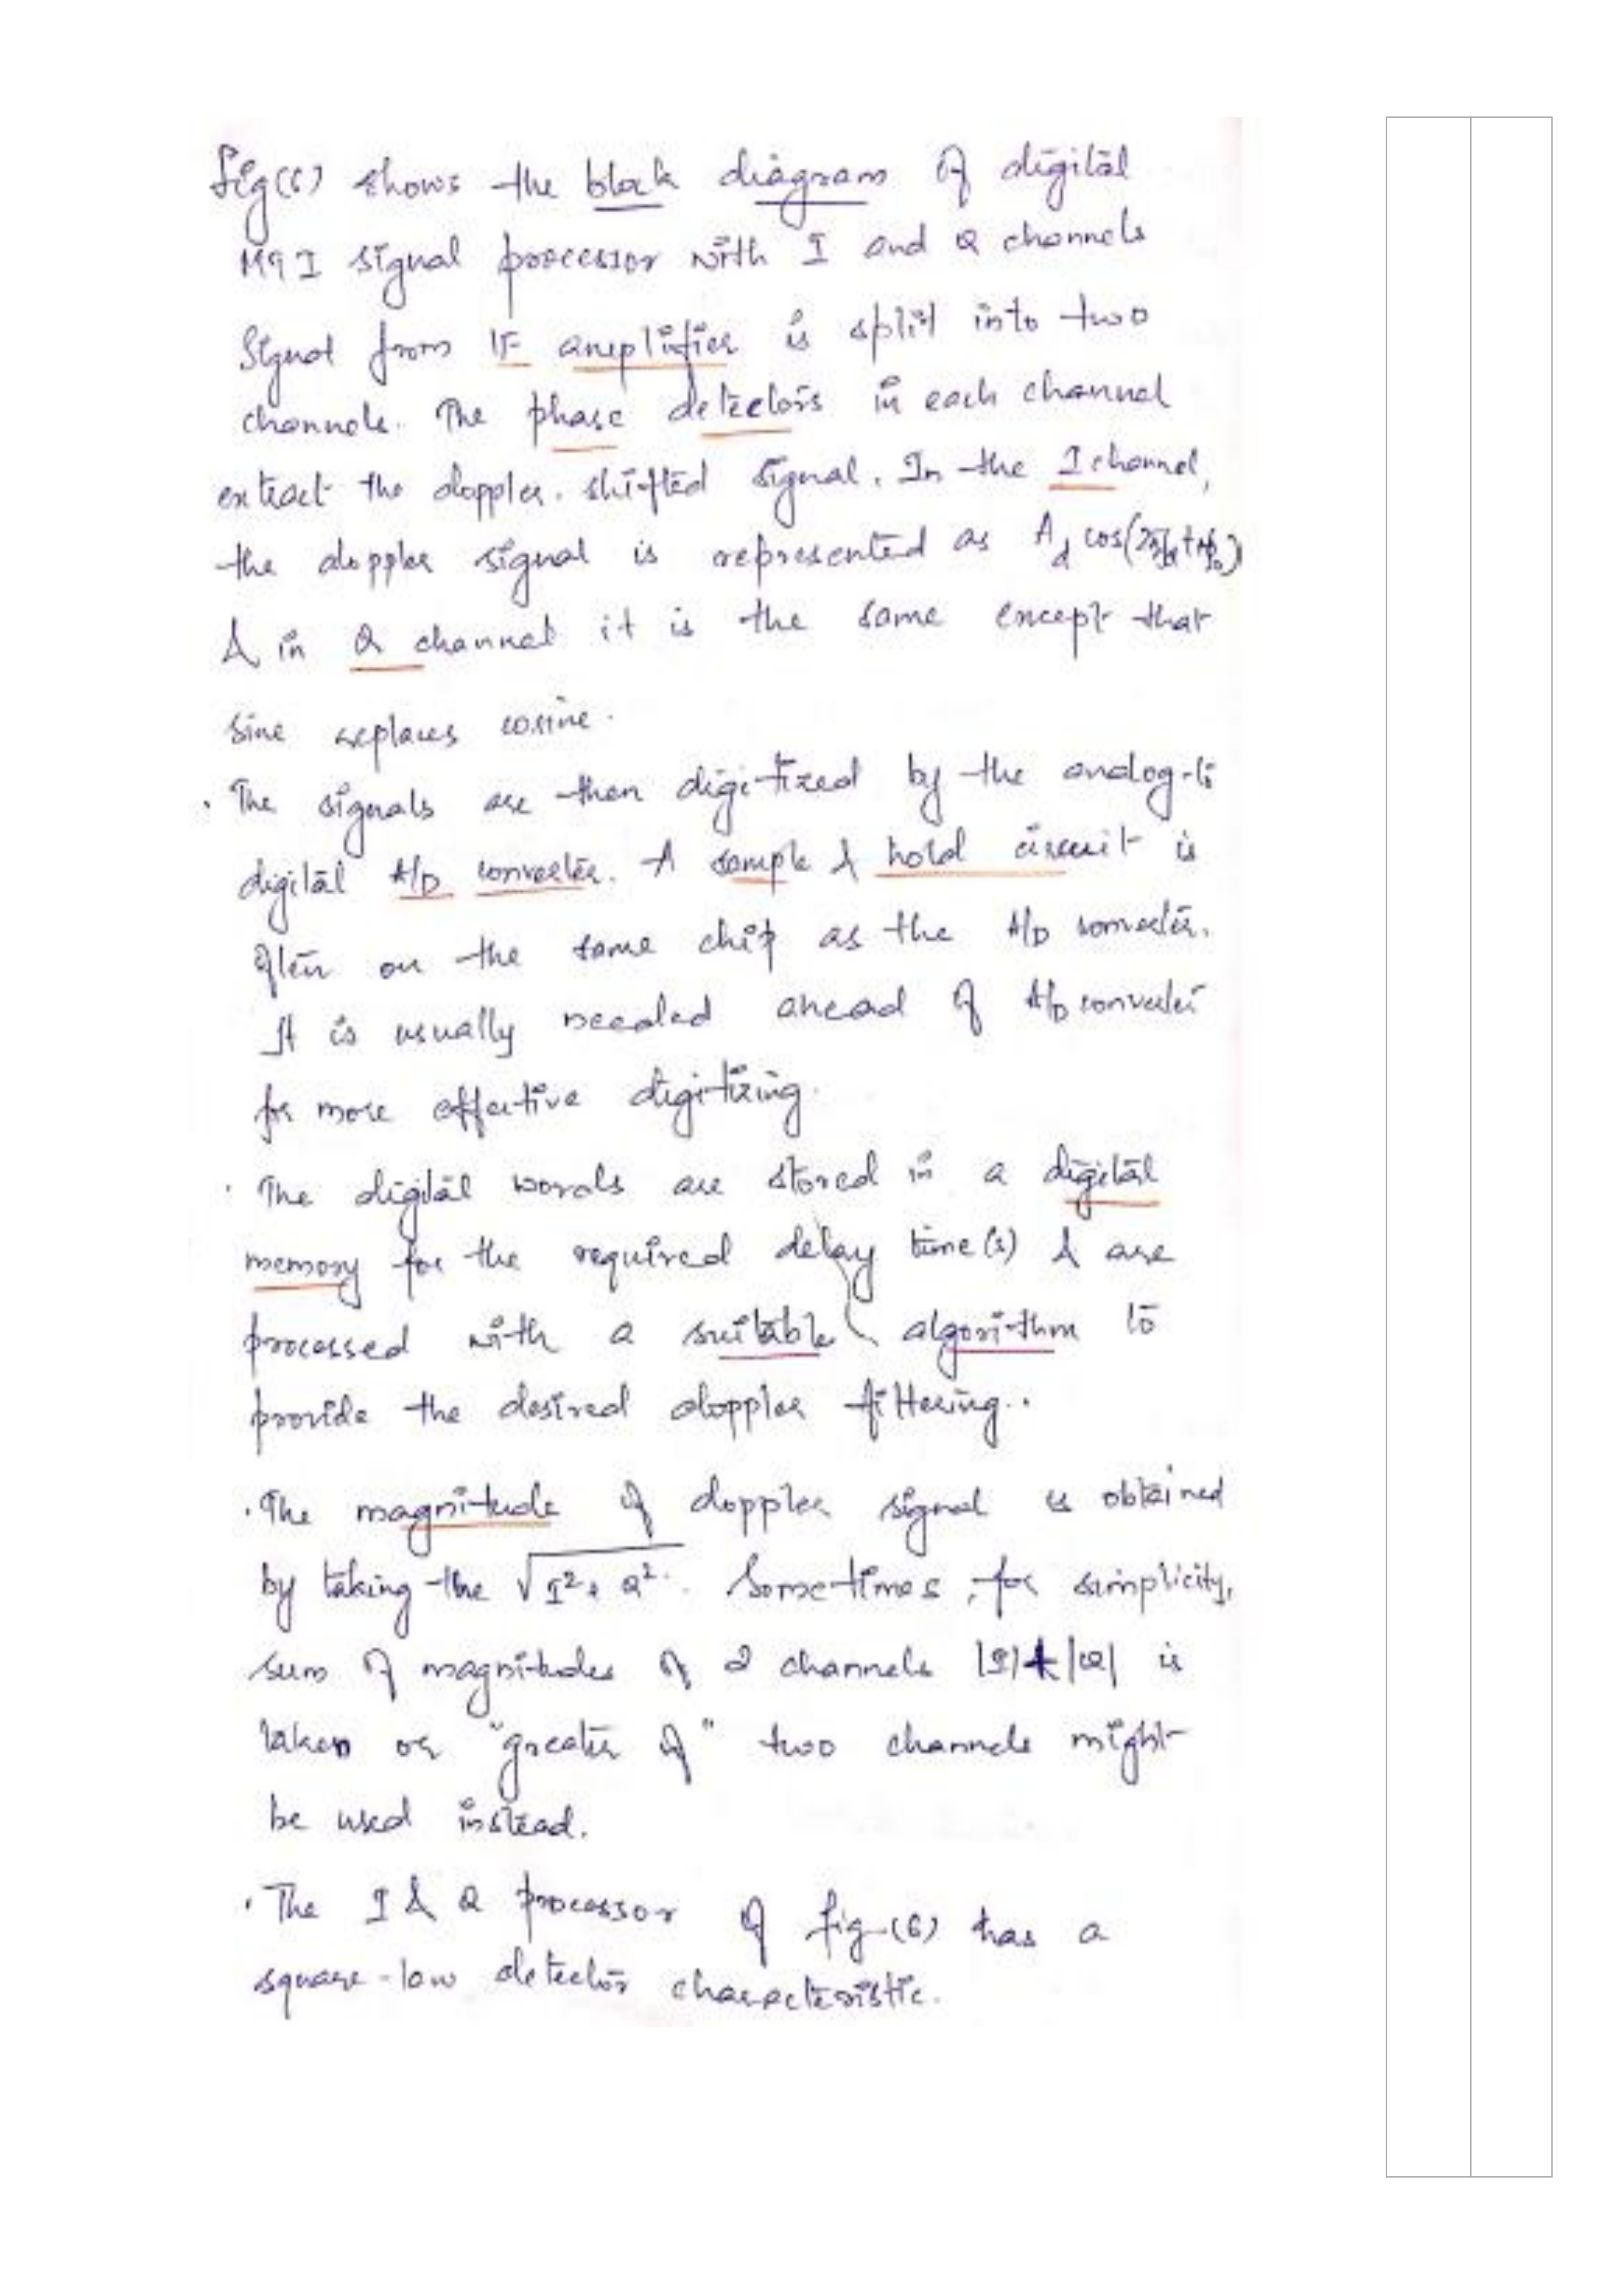 fig(6) shows the block diagram of digital
MTI signal processor with I and Q channels
Signal from IF amplifier is split into two
channels. The phase detectors in each channel
extract the doppler. shifted signal. In the I channel,
the doppler signal is represented as A_d cos(2πf_d t + φ_0)
& in Q channel it is the same except that
sine replaces cosine.
. The signals are then digitized by the analog-to
digital A/D converter. A sample & hold circuit is
often on the same chip as the A/D converter.
It is usually needed ahead of A/D converter
for more effective digitizing.
. The digital words are stored in a digital
memory for the required delay time(s) & are
processed with a suitable algorithm to
provide the desired doppler filtering..
. The magnitude of doppler signal is obtained
by taking the √I² + Q². Sometimes, for simplicity,
sum of magnitudes of 2 channels |I|+|Q| is
taken or "greater of" two channels might
be used instead.
. The I & Q processor of fig-(6) has a
square-law detector characteristic.